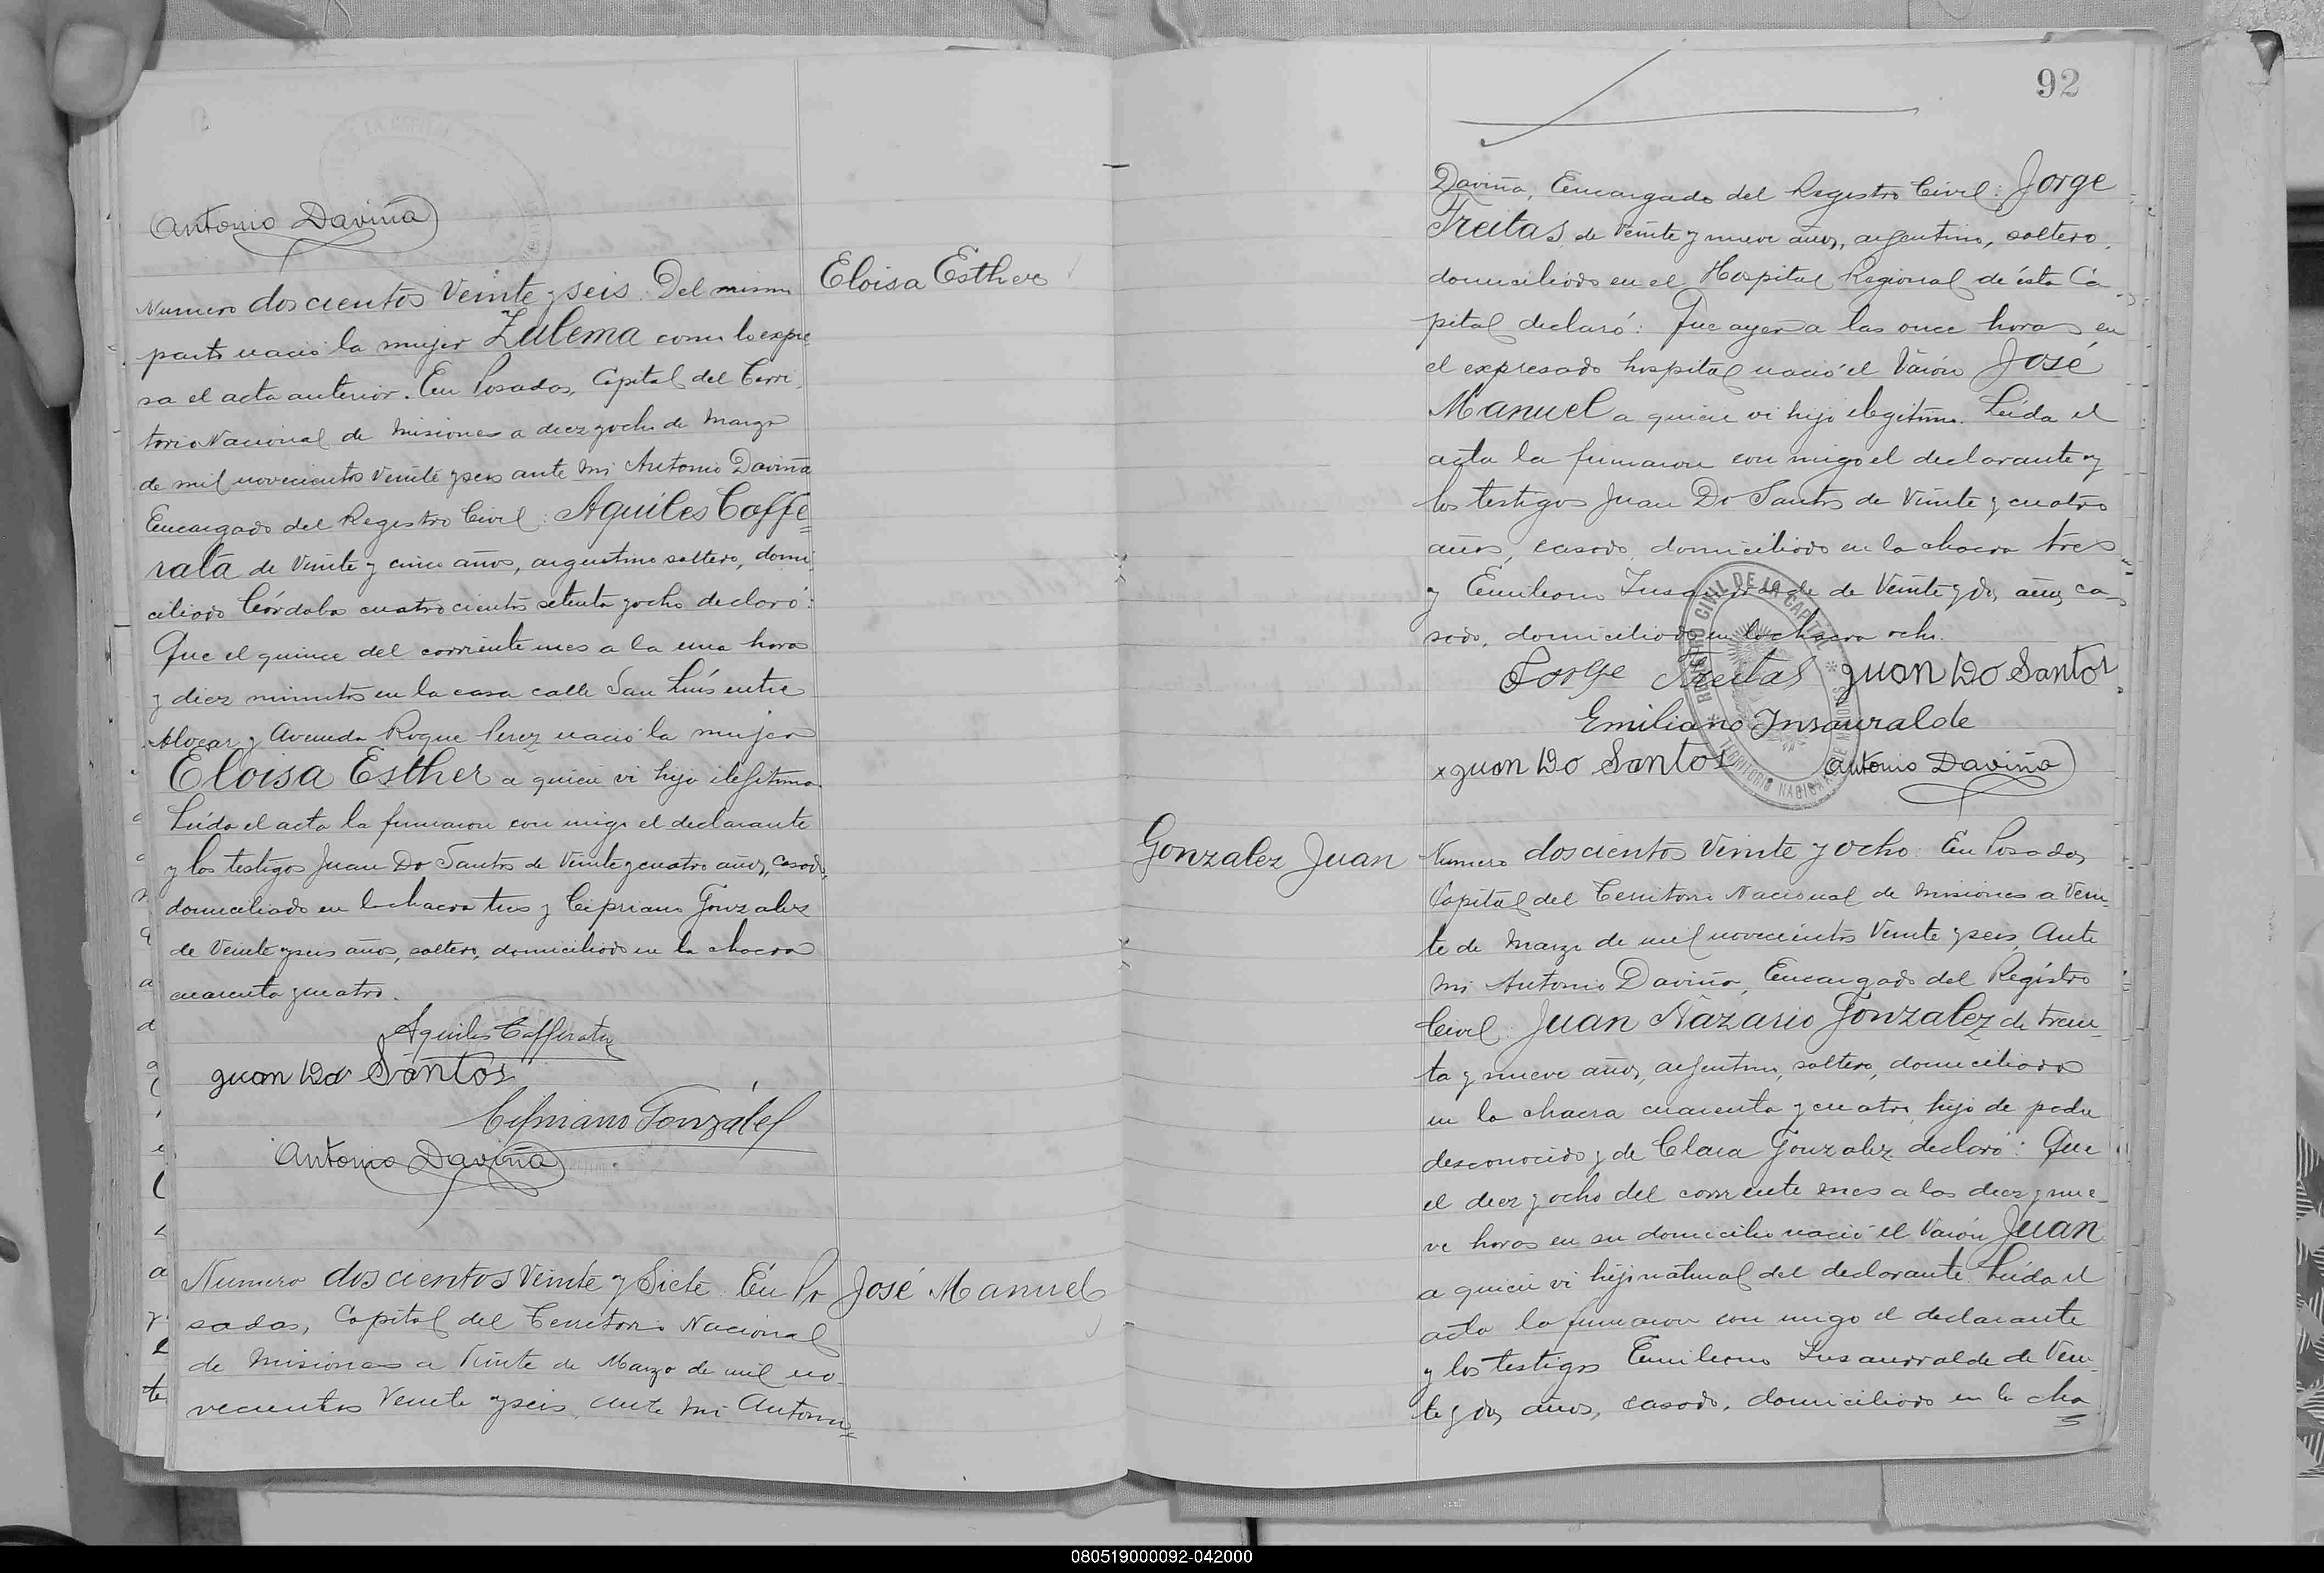 Antonio Daviña
Numero doscientos Veinte y seis. Del mismo
Eloisa Esther
parto nació la mujer Zulema como lo expre
sa el acta anterior. En Posadas, Capital del Terri
torio Nacional de Misiones a diez y ocho de Marzo
de mil novecientos Veinte y seis ante mi Antonio Daviña
Encargado del Registro Civil: Aquiles Coffe=
rata de Veinte y cinco años, argentino soltero, domi
ciliado Córdoba cuatrocientos setenta y ocho declaró:
Que el quince del corriente mes a la una hora
y diez minutos en la casa calle San Luís entre
Alvear y Avenida Roque Perez nació la mujer
Eloisa Esther a quien vi hija ilegitima.
Leída el acta la firmaron con migo el declarante
y los testigos Juan Do Santos de Veinte y cuatro años, casado,
domiciliado en la chacra tres y Cipriano Gonzalez
de Veinte y seis años, soltero, domiciliado en la chacra
cuarenta y cuatro.
Aquiles Cofferata
Juan Do Santos
Cipriano Gonzálel
Antonio Daviña
Numero doscientos Veinte y Siete. En Po
José Manuel
sadas, Capital del Territorio Nacional
de Misiones a Veinte de Marzo de mil no-
vecientos Veinte y seis, ante mi Antonio=
92
Daviña, Encargado del Registro Civil: Jorge
Freitas, de Veinte y nueve años, argentino, soltero,
domiciliado en el Hospital Regional de ésta Ca-
pital declaró: Que ayer a las once horas en
el expresado hospital nació el Varón José
Manuel a quien vi hijo ilegitimo. Leída el
acta la firmaron con migo el declarante y
los testigos Juan Do Santos de Veinte y cuatro
años, casado, domiciliado en la chacra tres
y Emiliano Insaurralde de Veinte y dos años ca-
sado, domiciliado en la chacra ocho.
REGISTRO CIVIL DE LA CAPITAL
TERRITORIO NACIONAL DE MISIONES
Jorge Freitas Juan Do Santos
Emiliano Insauralde
x Juan Do Santos Antonio Daviña
Gonzalez Juan
Numero doscientos Veinte y ocho. En Posadas,
Capital del Territorio Nacional de Misiones a Vein-
te de Marzo de mil novecientos Veinte y seis, Ante
mi Antonio Daviña, Encargado del Registro
Civil: Juan Názario Gonzalez de trein-
ta y nueve años, argentino, soltero, domiciliado
en la chacra cuarenta y cuatro, hijo de padre
desconocido y de Clara Gonzalez declaró: Que
el diez y ocho del corriente mes a las diez y nue-
ve horas en su domicilio nació el Varón Juan
a quien vi hijo natural del declarante. Leída el
acta la firmaron con migo el declarante
y los testigos Emiliano Insaurralde de Vein-
te y dos años, casado, domiciliado en la cha=
080519000092-042000